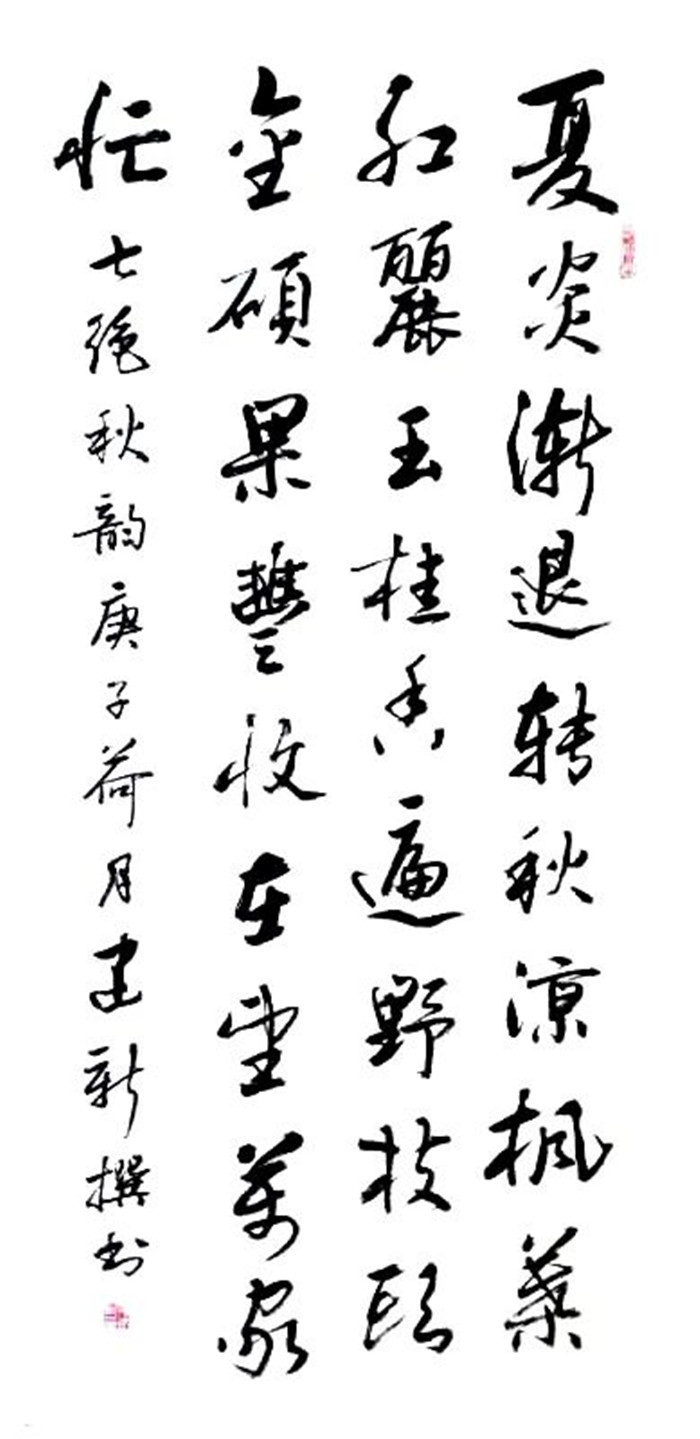 夏炎渐退转秋涼枫葉
红麗玉桂香遍野枝頭
金碩果豐收在望萬家
忙
七绝秋韵庚子荷月建新撰书